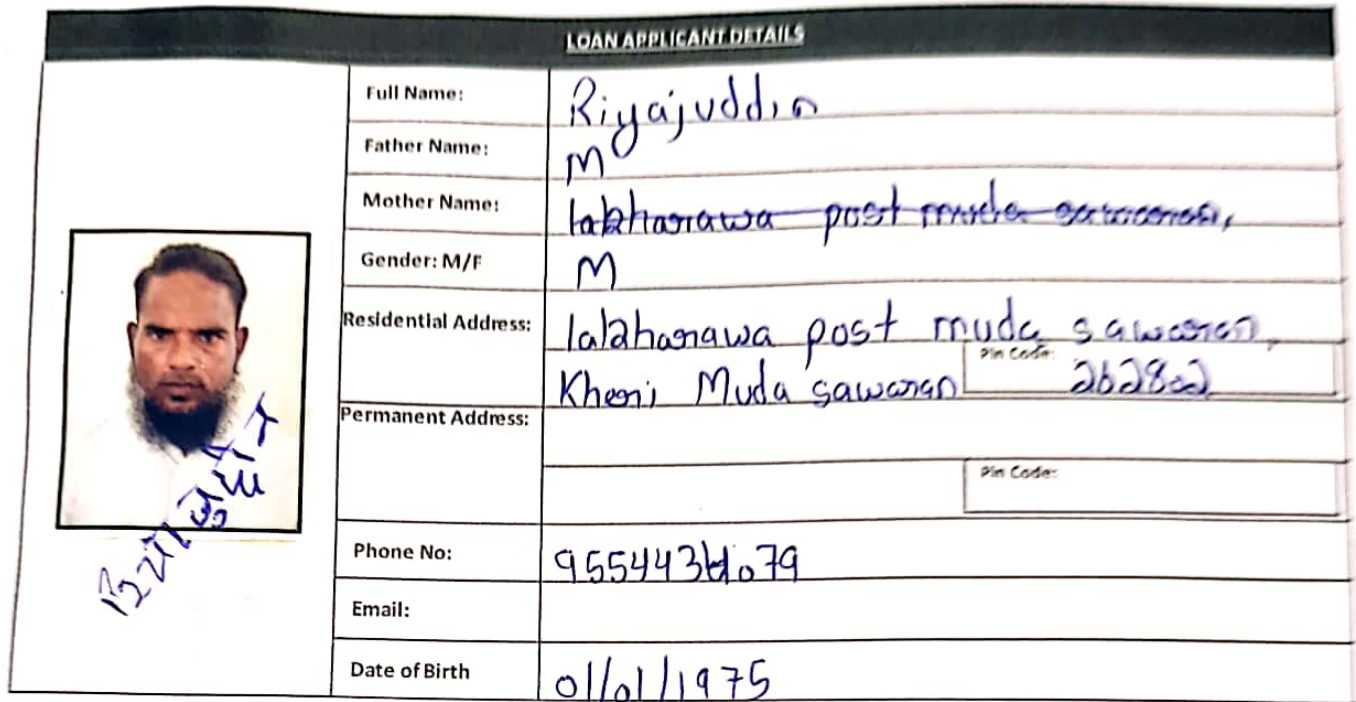 LOAN APPLICANT DETAILS
Full Name: Riyajuddin
Father Name: M
Mother Name: labharawa post muda sawaran,
Gender: M/F M
Residential Address: lalbharawa post muda sawaran,
Kheri Muda sawaran Pin Code: 262802
Permanent Address:
Pin Code:
Phone No: 955443 079
Email:
Date of Birth 01/01/1975
रियाजुद्दीन